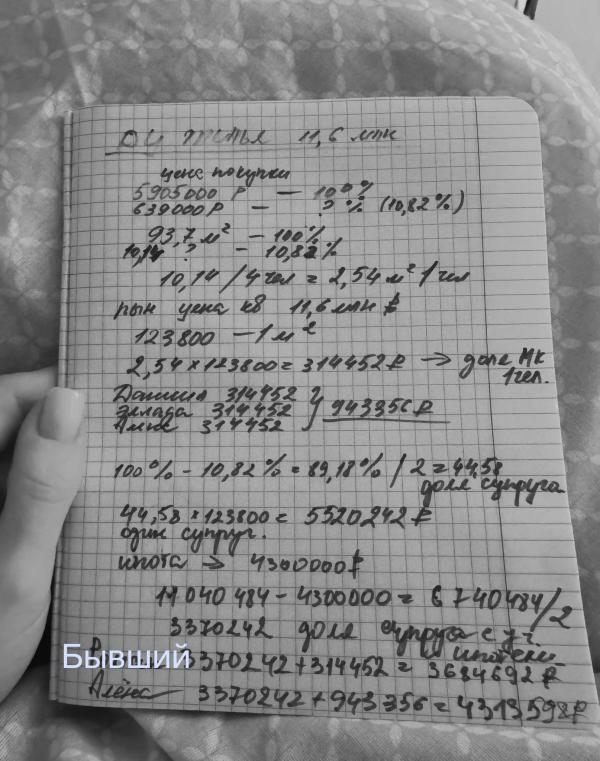 ДУ жилья 11,6 млн
цена покупки
5905000 ₽ — 100%
639000₽ — ? % (10,82%)
93,7 м² — 100%
10,14 ? — 10,82%
10,14 / 4 чел = 2,54 м² / чел
рын цена кв 11,6 млн ₽
123800 — 1 м²
2,54 × 123800 = 314452 ₽ → доля МК
1 чел.
314452
Эллада 314452 } 943356 ₽
314452
100% - 10,82% = 89,18% / 2 = 44,58
доля супруга
44,58 × 123800 = 5520242 ₽
один супруг.
ипота → 4300000 ₽
11 040 484 - 4300000 = 6 740 484 / 2
3370242 доля супруга с уч
ипотеки
Бывший 3370242 + 314452 = 3684692 ₽
Алёна — 3370242 + 943 356 = 4313598 ₽